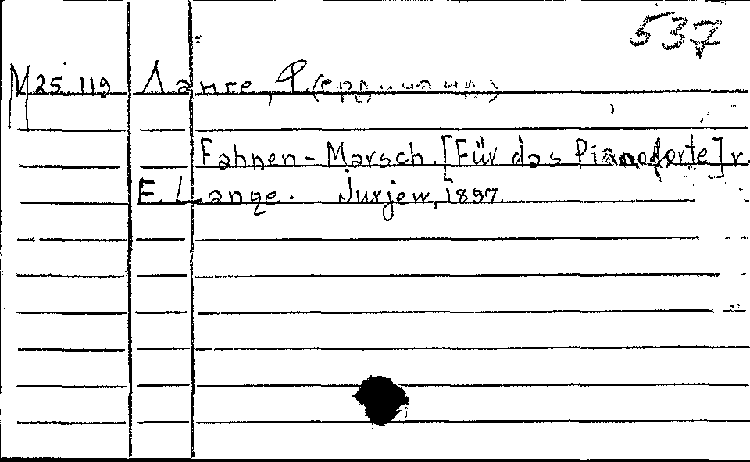 537
M 25 119 Ланге, Ф. (Фердинанд)
Fahnen-Marsch. [Für das Pianoforte] v.
F. Lange. Jurjew, 1897